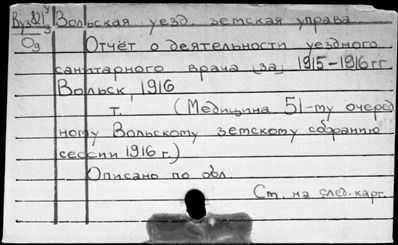 Вольская уезд. земская управа
О9
Отчёт о деятельности уездного
санитарного врача (за) 1915-1916 гг
Вольск, 1916
т. (Медицина 51-му очеред
ному Вольскому земскому собранию
сессии 1916 г.)
Описано по обл.
См. на след. карт.